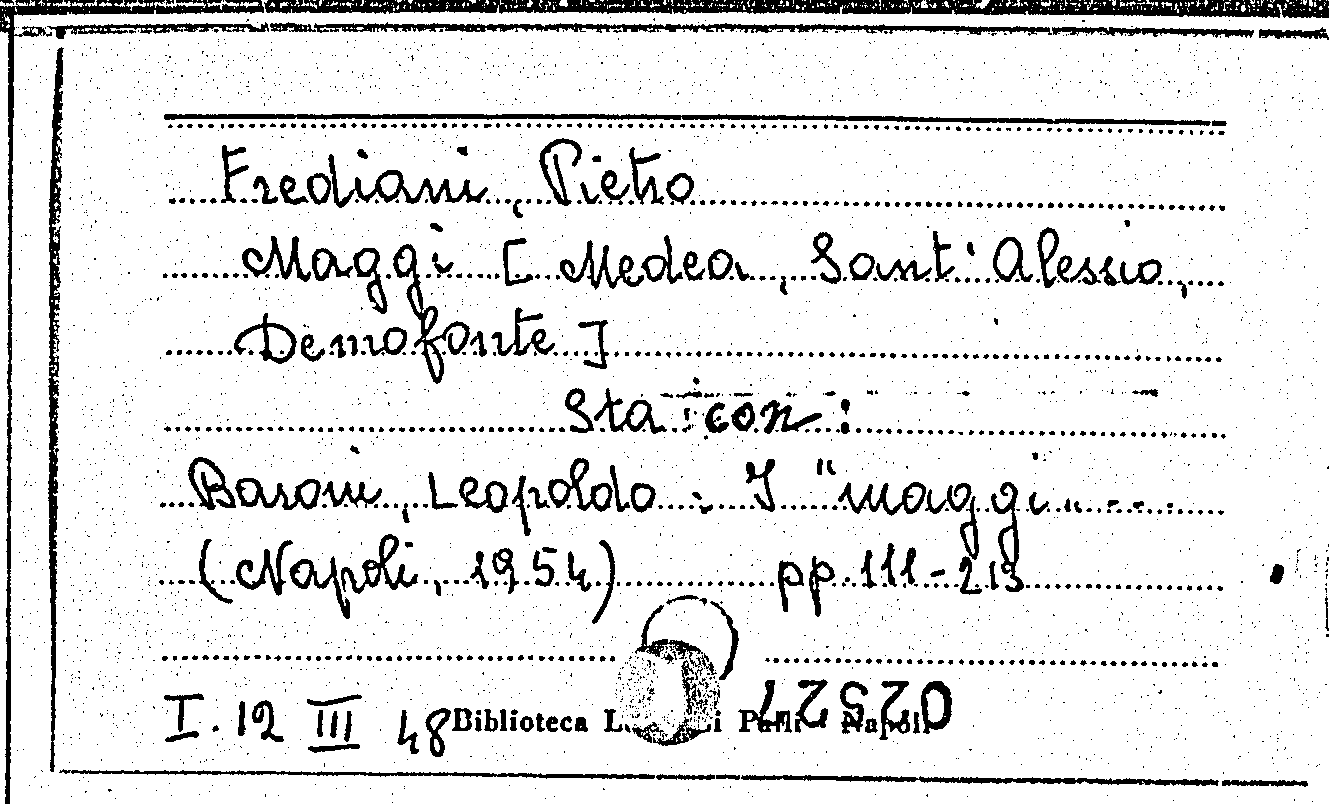 Frediani, Pietro
Maggi [Medea, Sant'Alessio,
Demofonte]
Sta con:
Baroni, Leopoldo: I "maggi" ...
(Napoli, 1954) pp. 111-213
I. 12 III 48 Biblioteca Napoli